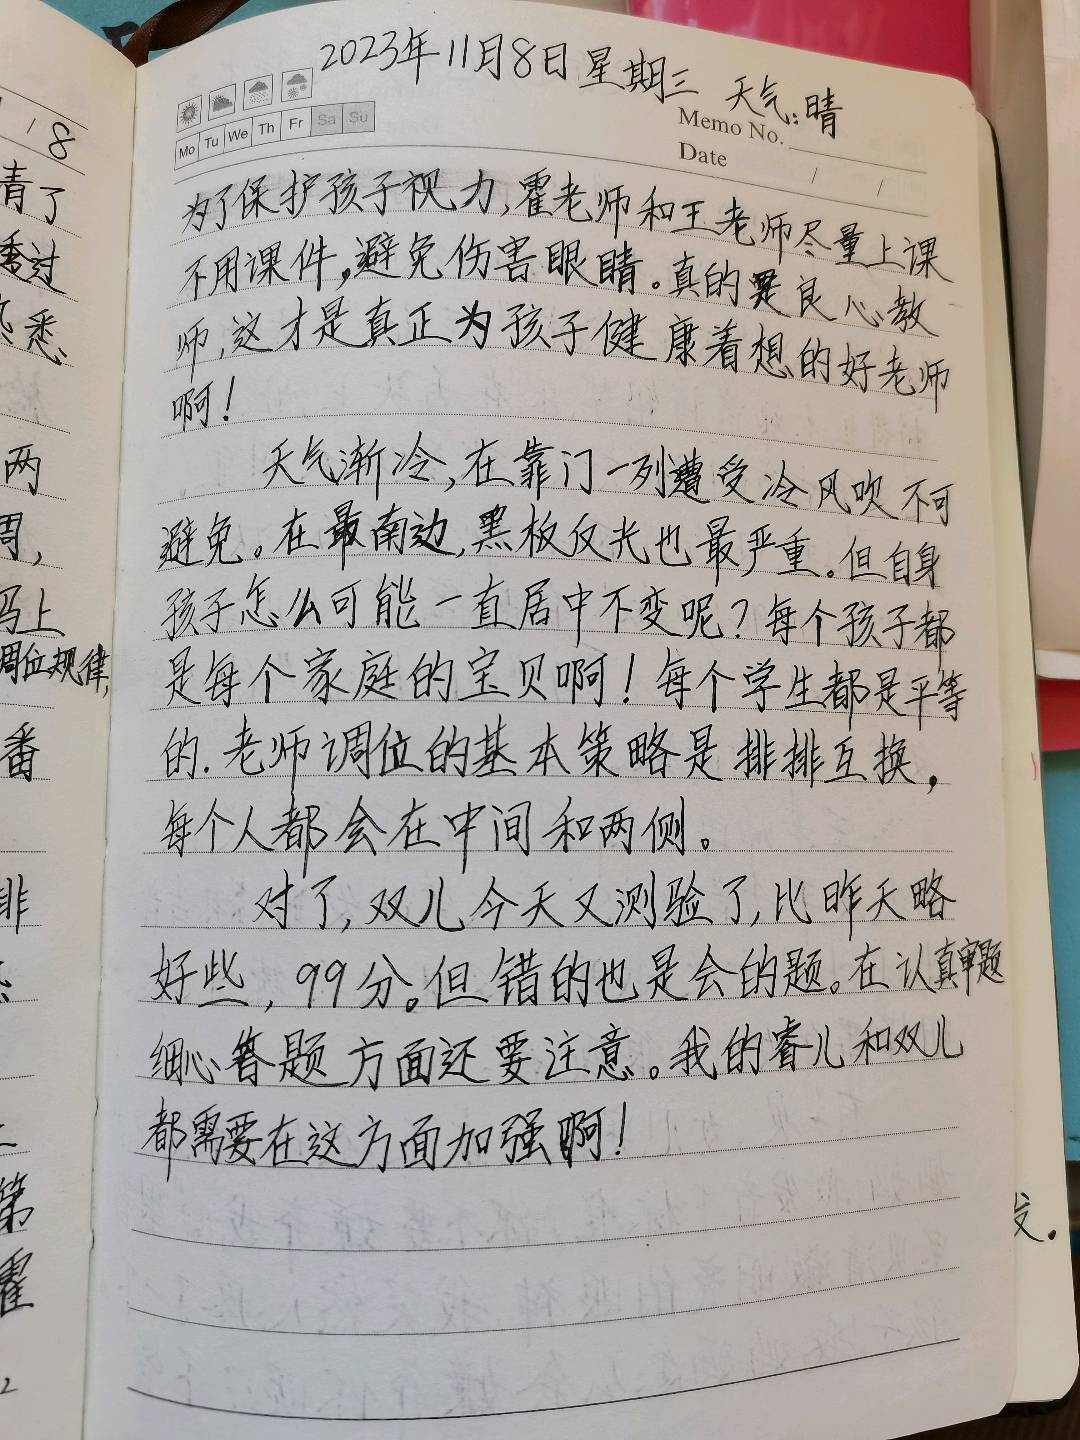 2023年11月8日 星期三 天气:晴
Mo Tu We Th Fr Sa Su
Memo No.
Date / /
为了保护孩子视力,霍老师和王老师尽量上课
不用课件,避免伤害眼睛。真的是良心教
师,这才是真正为孩子健康着想的好老师
啊!
天气渐冷,在靠门一列遭受冷风吹不可
避免。在最南边,黑板反光也最严重。但自身
孩子怎么可能一直居中不变呢?每个孩子都
是每个家庭的宝贝啊!每个学生都是平等
的.老师调位的基本策略是排排互换,
每个人都会在中间和两侧。
对了,双儿今天又测验了,比昨天略
好些,99分。但错的也是会的题。在认真审题
细心答题方面还要注意。我的睿儿和双儿
都需要在这方面加强啊!
/ 8
青了
透过
悉
两
周,
马上
调位规律,
番
排
第
霍
2
发.